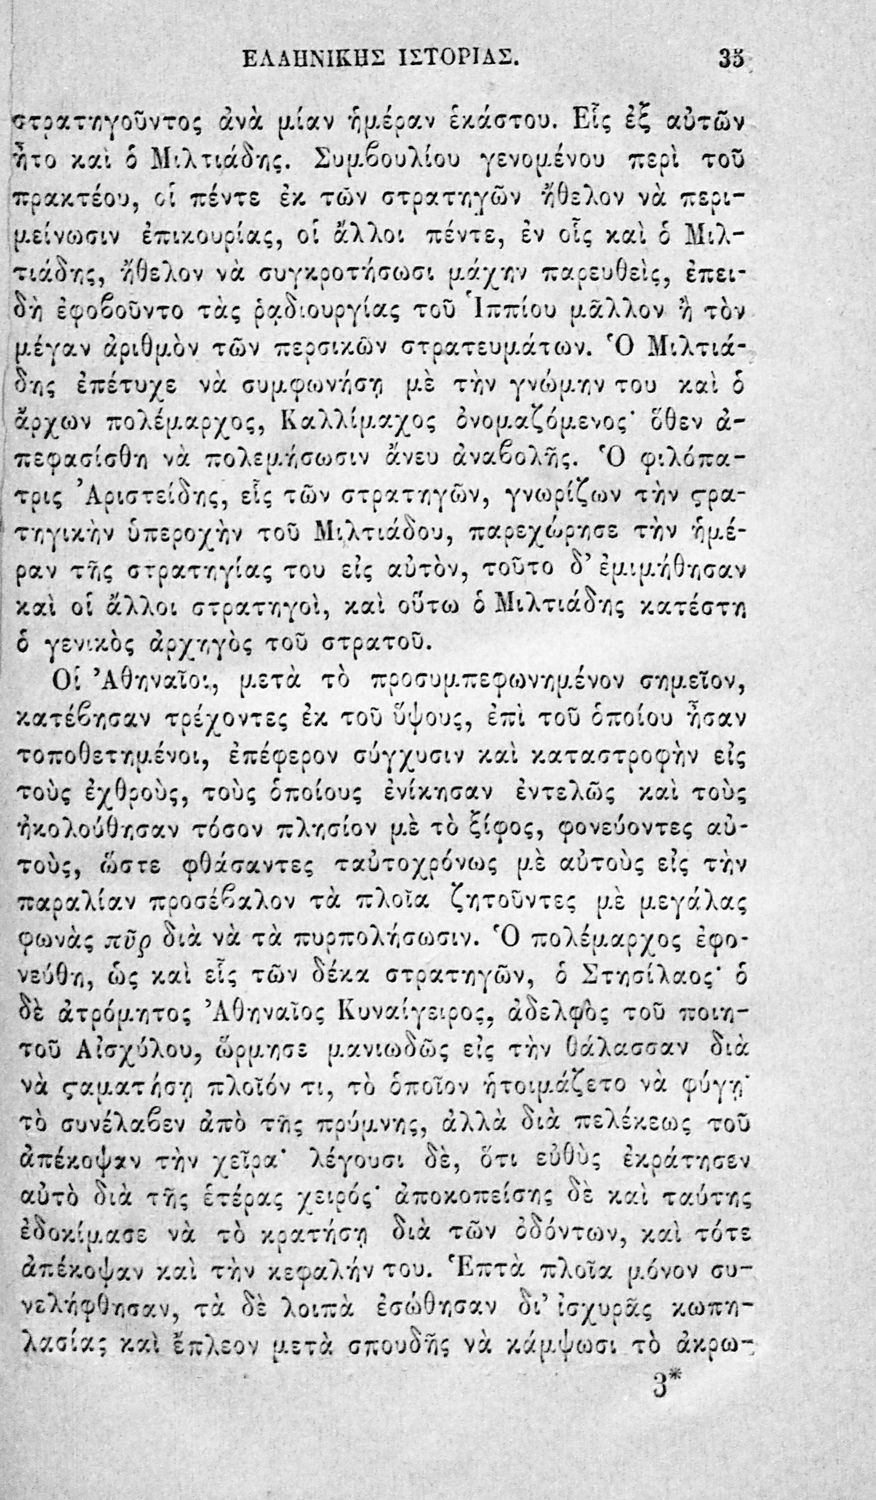 ΕΛΛΗΝΙΚΗΣ ΙΣΤΟΡΙΑΣ. 35
στρατηγοῦντος ἀνὰ μίαν ἡμέραν ἑκάστου. Εἷς ἐξ αὐτῶν
ἦτο καὶ ὁ Μιλτιάδης. Συμβουλίου γενομένου περὶ τοῦ
πρακτέου, οἱ πέντε ἐκ τῶν στρατηγῶν ἤθελον νὰ περι-
μείνωσιν ἐπικουρίας, οἱ ἄλλοι πέντε, ἐν οἷς καὶ ὁ Μιλ-
τιάδης, ἤθελον νὰ συγκροτήσωσι μάχην παρευθεὶς, ἐπει-
δὴ ἐφοβοῦντο τὰς ῥᾳδιουργίας τοῦ Ἱππίου μᾶλλον ἢ τὸν
μέγαν ἀριθμὸν τῶν περσικῶν στρατευμάτων. Ὁ Μιλτιά-
δης ἐπέτυχε νὰ συμφωνήσῃ μὲ τὴν γνώμην του καὶ ὁ
ἄρχων πολέμαρχος, Καλλίμαχος ὀνομαζόμενος· ὅθεν ἀ-
πεφασίσθη νὰ πολεμήσωσιν ἄνευ ἀναβολῆς. Ὁ φιλόπα-
τρις Ἀριστείδης, εἷς τῶν στρατηγῶν, γνωρίζων τὴν ϛρα-
τηγικὴν ὑπεροχὴν τοῦ Μιλτιάδου, παρεχώρησε τὴν ἡμέ-
ραν τῆς στρατηγίας του εἰς αὐτὸν, τοῦτο δ' ἐμιμήθησαν
καὶ οἱ ἄλλοι στρατηγοὶ, καὶ οὕτω ὁ Μιλτιάδης κατέστη
ὁ γενικὸς ἀρχηγὸς τοῦ στρατοῦ.
Οἱ Ἀθηναῖοι, μετὰ τὸ προσυμπεφωνημένον σημεῖον,
κατέβησαν τρέχοντες ἐκ τοῦ ὕψους, ἐπὶ τοῦ ὁποίου ἦσαν
τοποθετημένοι, ἐπέφερον σύγχυσιν καὶ καταστροφὴν εἰς
τοὺς ἐχθροὺς, τοὺς ὁποίους ἐνίκησαν ἐντελῶς καὶ τοὺς
ἠκολούθησαν τόσον πλησίον μὲ τὸ ξίφος, φονεύοντες αὐ-
τοὺς, ὥστε φθάσαντες ταὐτοχρόνως μὲ αὐτοὺς εἰς τὴν
παραλίαν προσέβαλον τὰ πλοῖα ζητοῦντες μὲ μεγάλας
φωνὰς πῦρ διὰ νὰ τὰ πυρπολήσωσιν. Ὁ πολέμαρχος ἐφο-
νεύθη, ὡς καὶ εἷς τῶν δέκα στρατηγῶν, ὁ Στησίλαος· ὁ
δὲ ἀτρόμητος Ἀθηναῖος Κυναίγειρος, ἀδελφὸς τοῦ ποιη-
τοῦ Αἰσχύλου, ὥρμησε μανιωδῶς εἰς τὴν θάλασσαν διὰ
νὰ ϛαματήσῃ πλοῖόν τι, τὸ ὁποῖον ἡτοιμάζετο νὰ φύγῃ·
τὸ συνέλαβεν ἀπὸ τῆς πρύμνης, ἀλλὰ διὰ πελέκεως τοῦ
ἀπέκοψαν τὴν χεῖρα· λέγουσι δὲ, ὅτι εὐθὺς ἐκράτησεν
αὐτὸ διὰ τῆς ἑτέρας χειρός· ἀποκοπείσης δὲ καὶ ταύτης
ἐδοκίμασε νὰ τὸ κρατήσῃ διὰ τῶν ὀδόντων, καὶ τότε
ἀπέκοψαν καὶ τὴν κεφαλήν του. Ἑπτὰ πλοῖα μόνον συ-
νελήφθησαν, τὰ δὲ λοιπὰ ἐσώθησαν δι' ἰσχυρᾶς κωπη-
λασίας καὶ ἔπλεον μετὰ σπουδῆς νὰ κάμψωσι τὸ ἀκρω-
3*